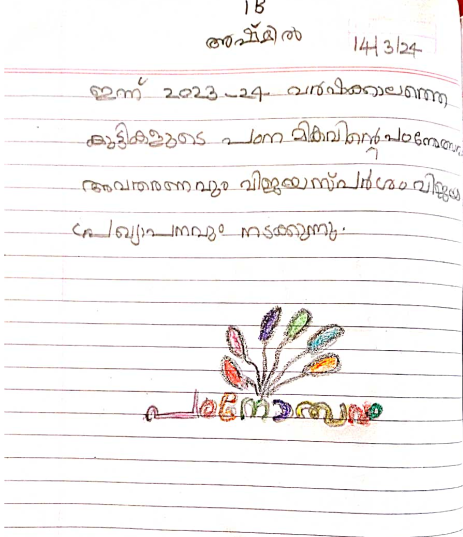 1B
അഫ്മിൽ
14/3/24
ഇന്ന് 2023-24 വർഷക്കാലത്തെ
കുട്ടികളുടെ പഠന മികവിൻ്റെ പഠനോത്സവ
അവതരണവും വിജയസ്പർശം വിജയ
പ്രഖ്യാപനവും നടക്കുന്നു.
പഠനോത്സവം